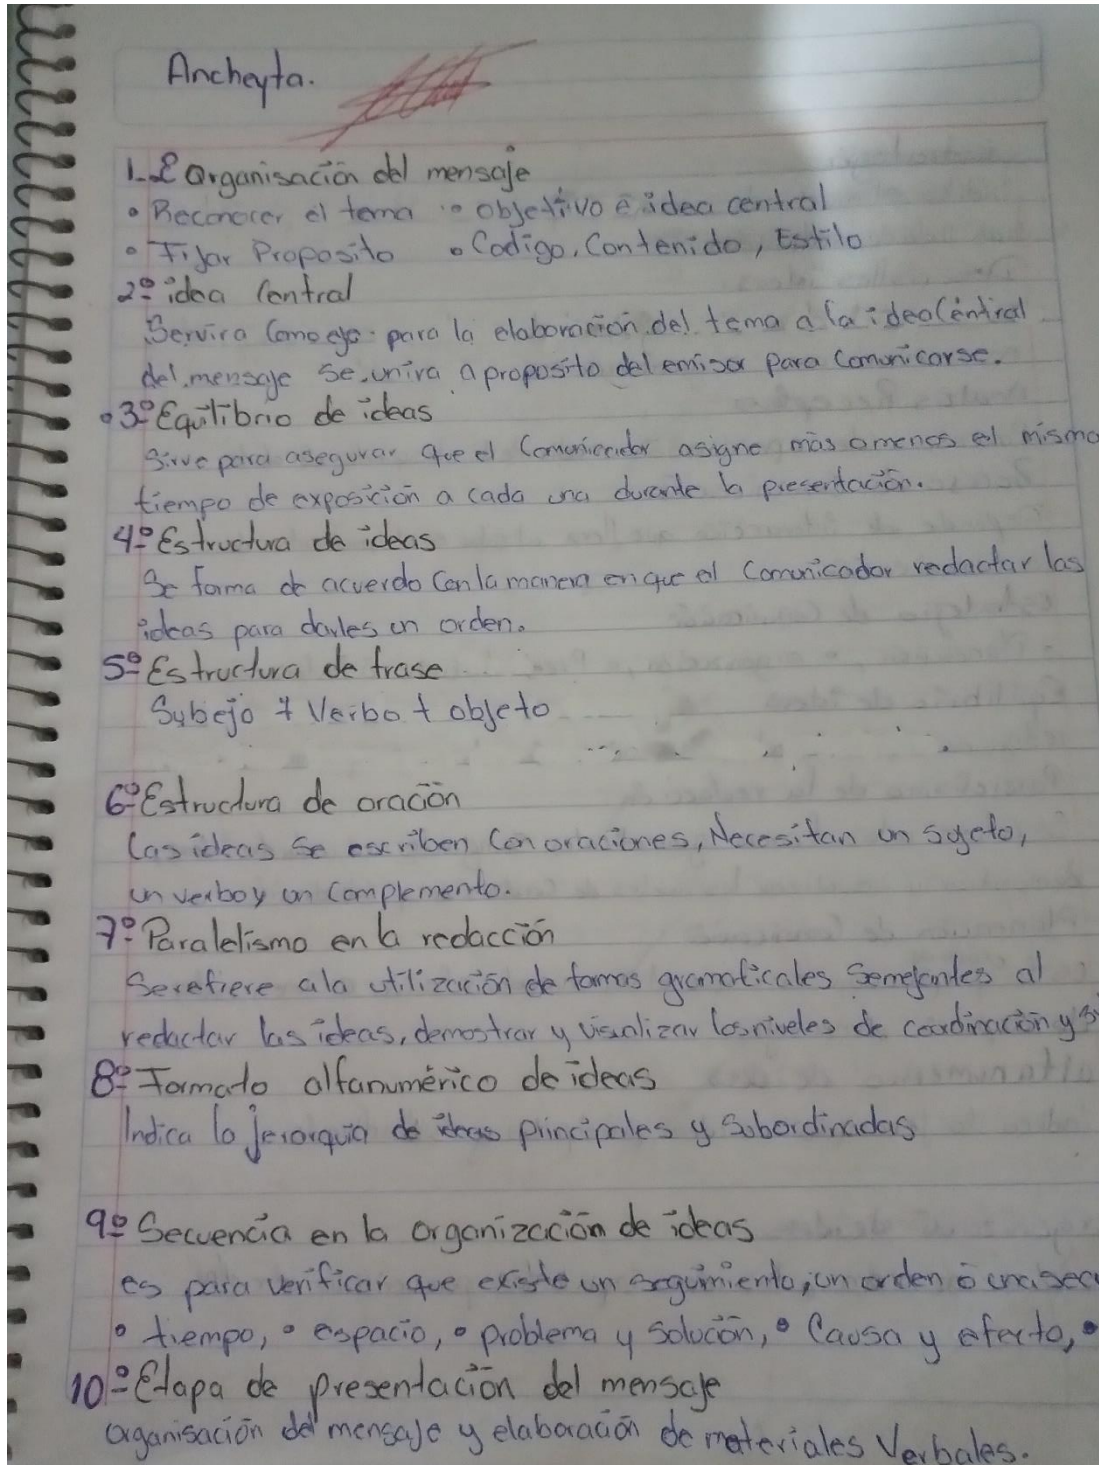 Ancheyta.
1-º Organisación del mensaje
• Reconocer el tema • objetivo e idea central
• Fijar Proposito • Codigo, Contenido, Estilo
2º idea Central
Servira Como eje para la elaboración del tema a la idea Central
del mensaje se unira a proposito del emisor para Comunicarse.
• 3º Equilibrio de ideas
Sirve para asegurar que el Comunicador asigne más o menos el mismo
tiempo de exposición a cada una durante la presentación.
4º Estructura de ideas
Se forma de acuerdo Con la manera en que el Comunicador redactar las
ideas para darles un orden.
5º Estructura de frase
Subejo + Verbo + objeto
6º Estructura de oración
Las ideas Se escriben Con oraciones, Necesitan un sujeto,
un verbo y un Complemento.
7º Paralelismo en la redacción
Se refiere a la utilización de formas gramaticales Semejantes al
redactar las ideas, demostrar y visualizar los niveles de coordinación y
8º Formato alfanumérico de ideas
Indica la jerarquia de ideas principales y Subordinadas
9º Secuencia en la organización de ideas
es para verificar que existe un seguimiento, un orden ó una sec
• tiempo, • espacio, • problema y Solución, • Causa y efecto, •
10º Etapa de presentación del mensaje
organisación del mensaje y elaboración de materiales Verbales.